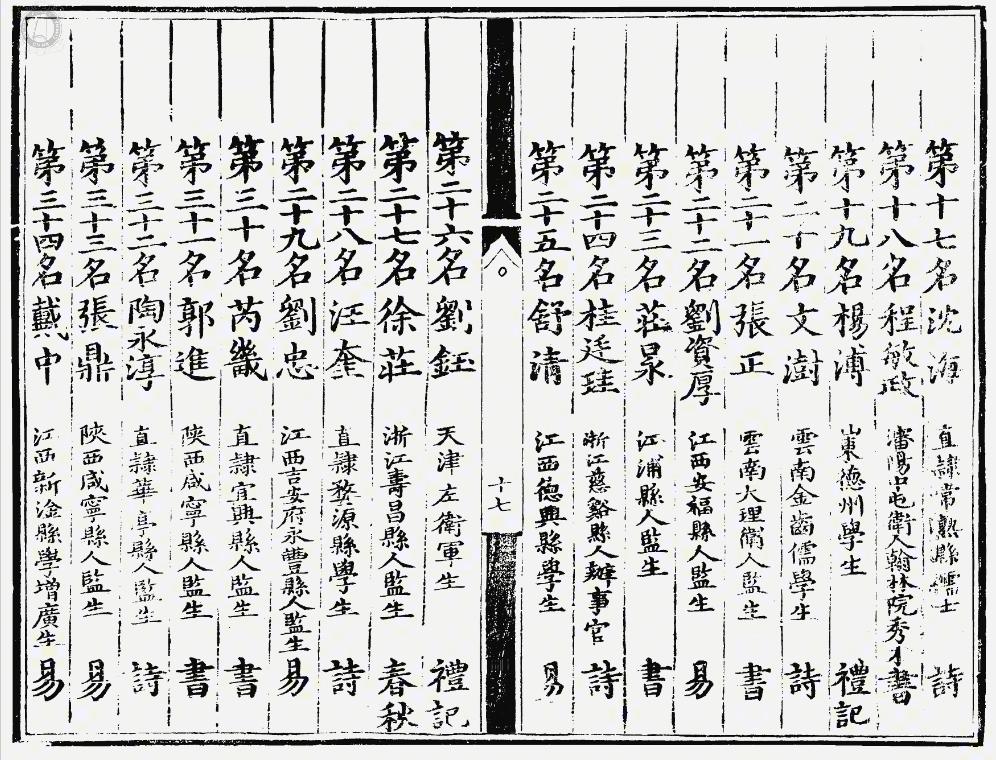 第十七名沈海 直隸常熟縣儒士 詩
第十八名程敏政 瀋陽中屯衛人翰林院秀才 書
第十九名楊溥 山東德州學生 禮記
第二十名文澍 雲南金齒儒學生 詩
第二十一名張正 雲南大理衛人監生 書
第二十二名劉資厚 江西安福縣人監生 易
第二十三名莊㫤 江浦縣人監生 書
第二十四名桂廷珪 浙江慈谿縣人辦事官 詩
第二十五名舒清 江西德興縣學生 易
十七
第二十六名劉鈺 天津左衛軍生 禮記
第二十七名徐莊 浙江壽昌縣人監生 春秋
第二十八名汪奎 直隸婺源縣學生 詩
第二十九名劉忠 江西吉安府永豐縣人監生 易
第三十名芮畿 直隸宜興縣人監生 書
第三十一名郭進 陝西咸寧縣人監生 書
第三十二名陶永淳 直隸華亭縣人監生 詩
第三十三名張鼎 陝西咸寧縣人監生 易
第三十四名戴中 江西新淦縣學增廣生 易